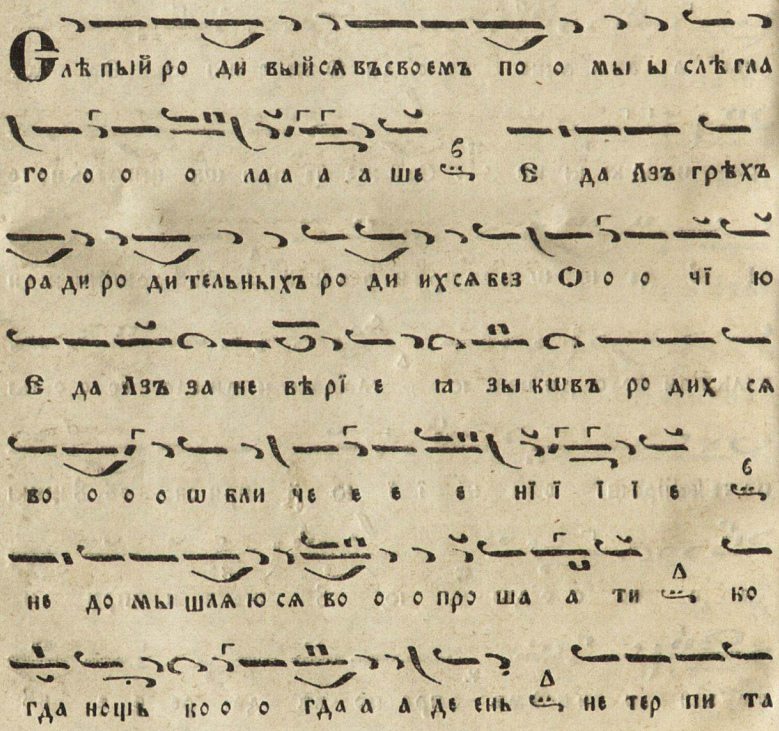 Слѣпый ро ди выйся въ своемъ по о мы ы слѣ гла
го о о о ла а а а ше в Є да Азъ грѣхъ
ра ди ро ди тельныхъ ро ди ихся без О о о чї ю
Є да Азъ за не вѣ рї е ꙗ зы кѡвъ ро дих ся
во о о о ѡ бли че е е е нї ї ї ї е в
не до мы шля ю ся во о о про ша а ти Δ ко
гда нощь ко о о гда а а де ень Δ не тер пи та